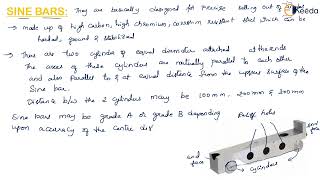 SINE BARS: They are basically designed for precise setting out of
Keeda
→ made up of high carbon, high chromium, corrosion resistant steel which can be
hardend, ground & stabilized
→ There are two cylinder of equal diameter attached at the ends
The axes of these cylinders are mutually parallel to each other
and also Parallel to & at equal distance from the uppser surface of the
Sine bar.
Distance b/w the 2 cylinders may be 100 mm, 200 mm & 300 mm
Sine bars may be grade A or grade B depending
upon accuracy of the centre dis
Relief holes
end face
end face
cylinders